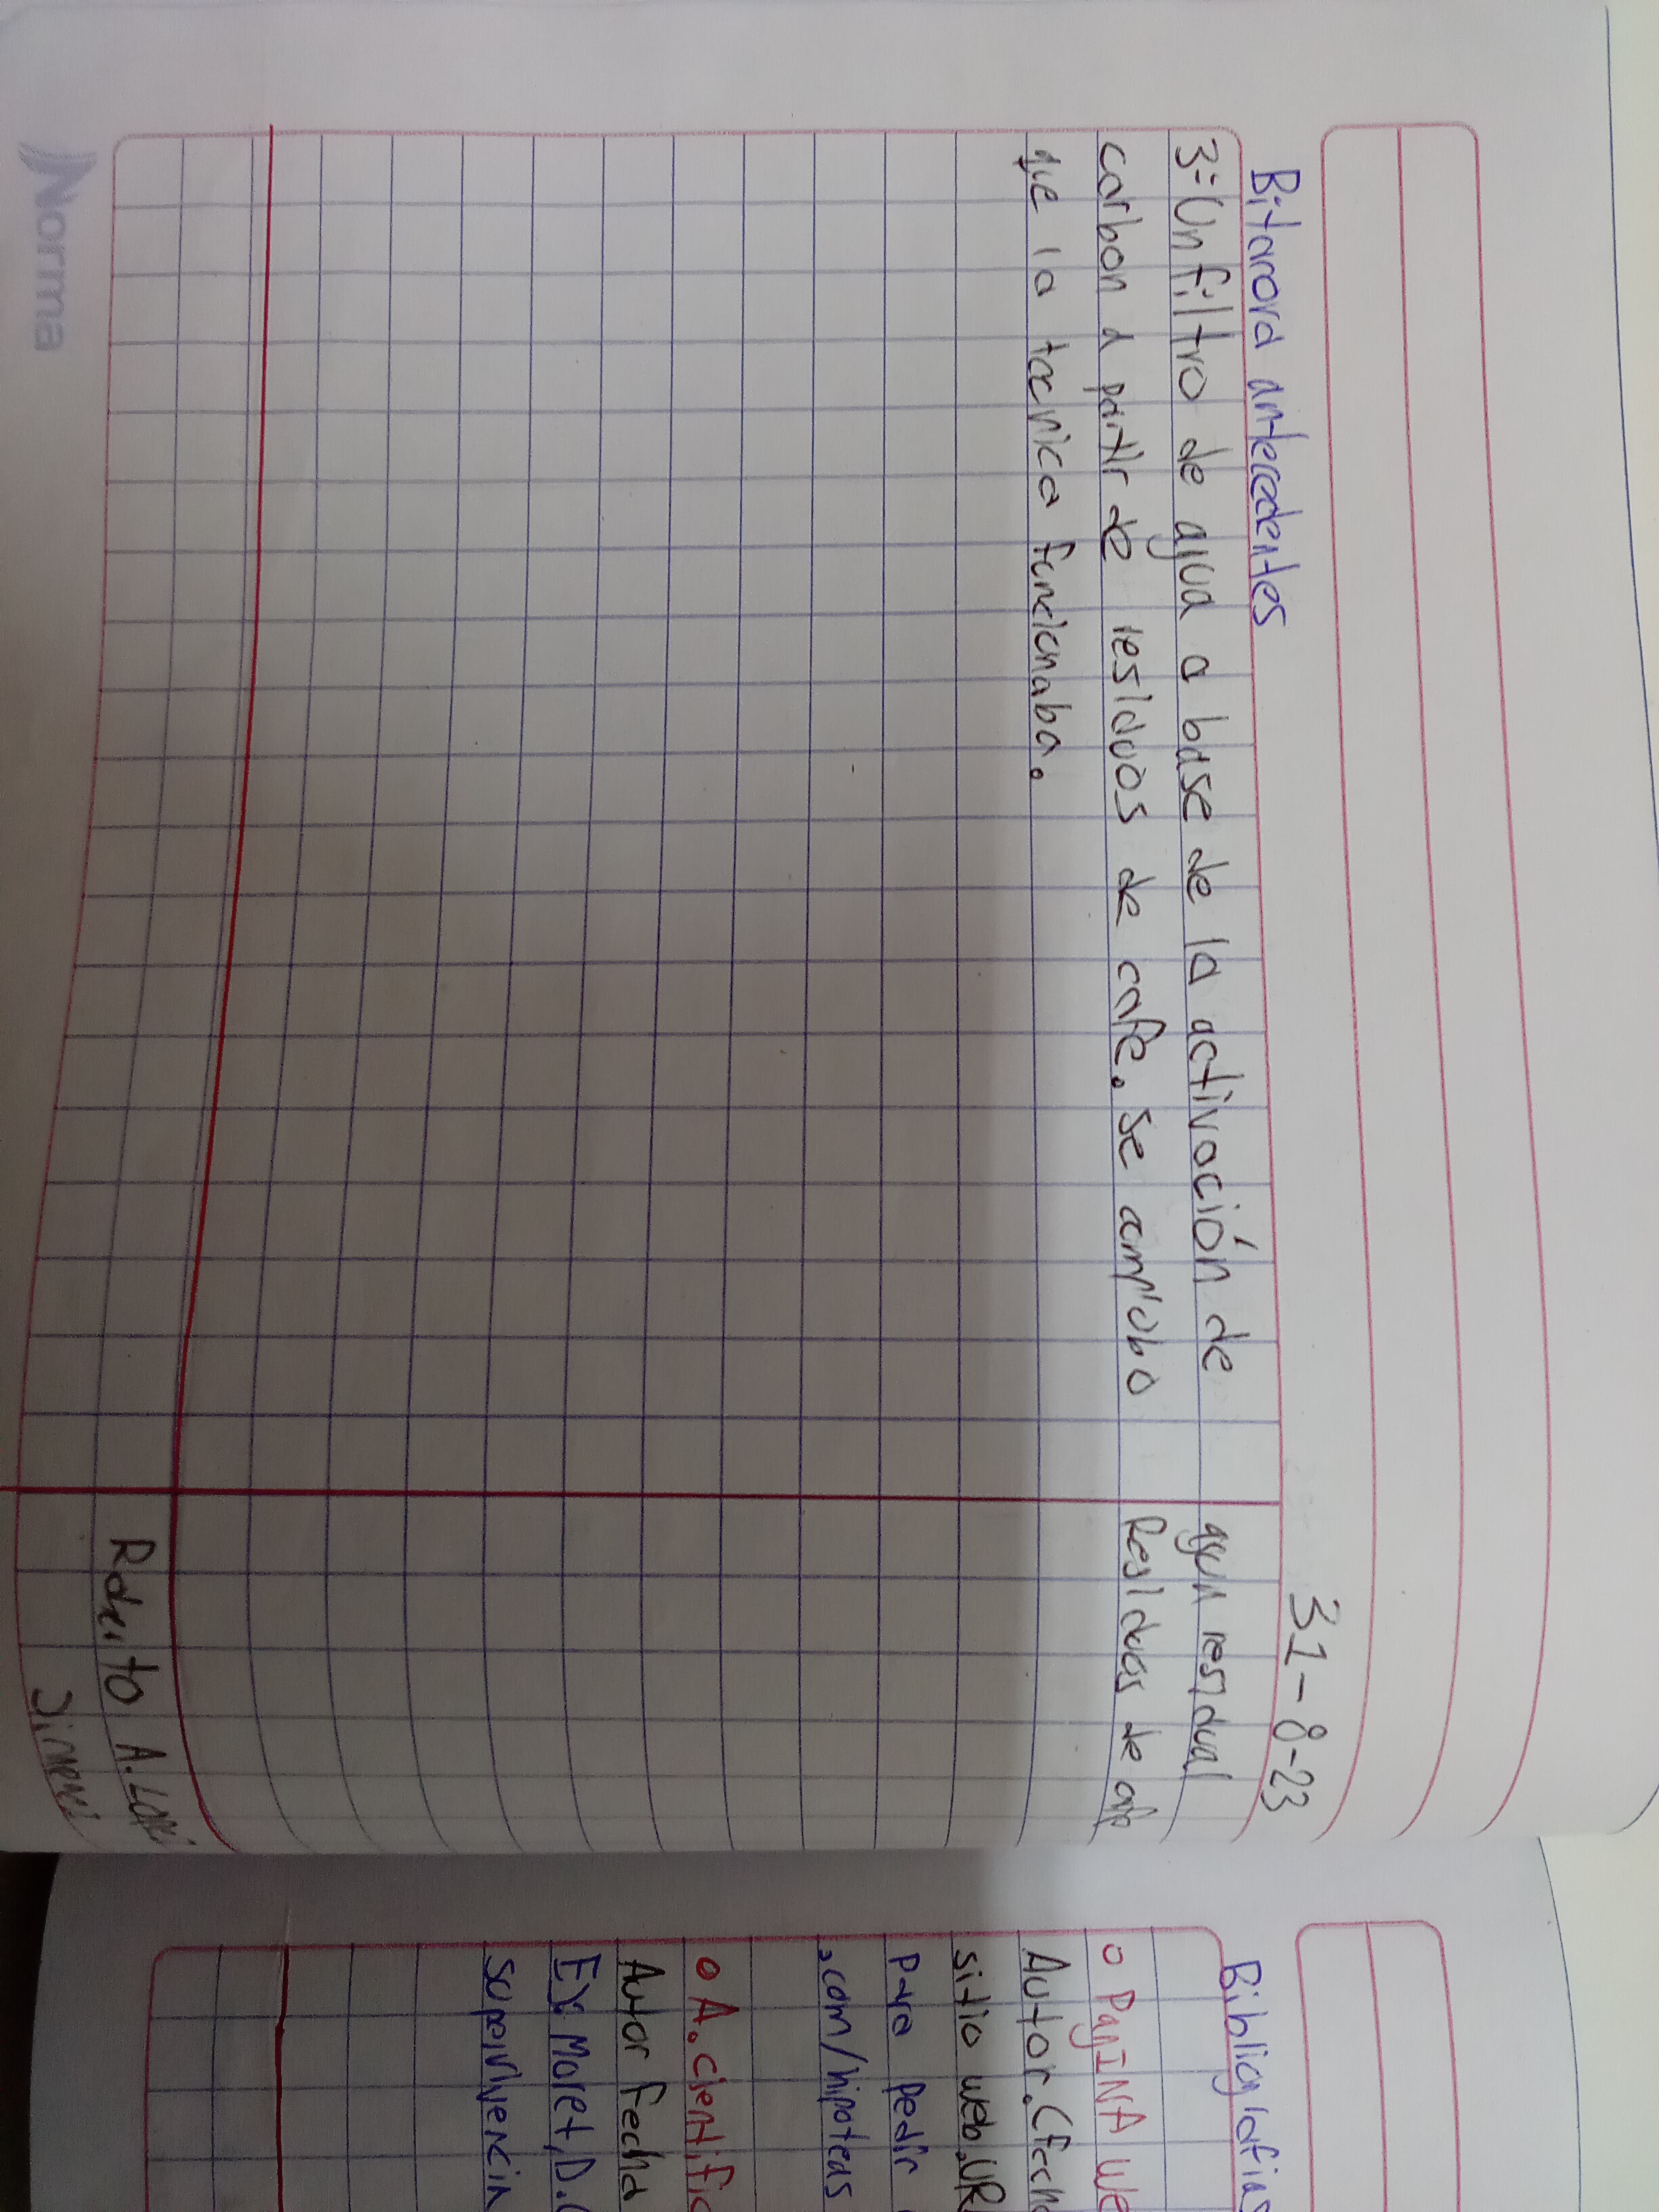 Bitacora antecedentes
31-8-23
3=Un filtro de agua a base de la activación de
carbon a partir de residuos de cafe. Se comprobo
que la tecnica funcionaba.
agua residual
Residuos de cafe
Roberto A.
Norma
Bibliografias
o PagINA we
Autor.(fech
sitio web.UR
para pedir
.com/hipotecas
o A.cientific
Autor fecha
Ex Moret, D.(
supervivencia